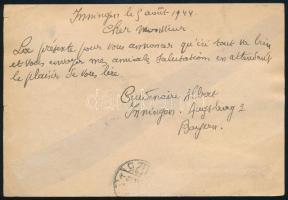 Inningen le 5 août 1944
Cher Monsieur.
La présente pour vous annoncer qu'ici tout va bien
et vous envoyer me amicale salutation en attendant
le plaisir de vous lire.
Albert
Inningen. Augsburg 2
Bayern.